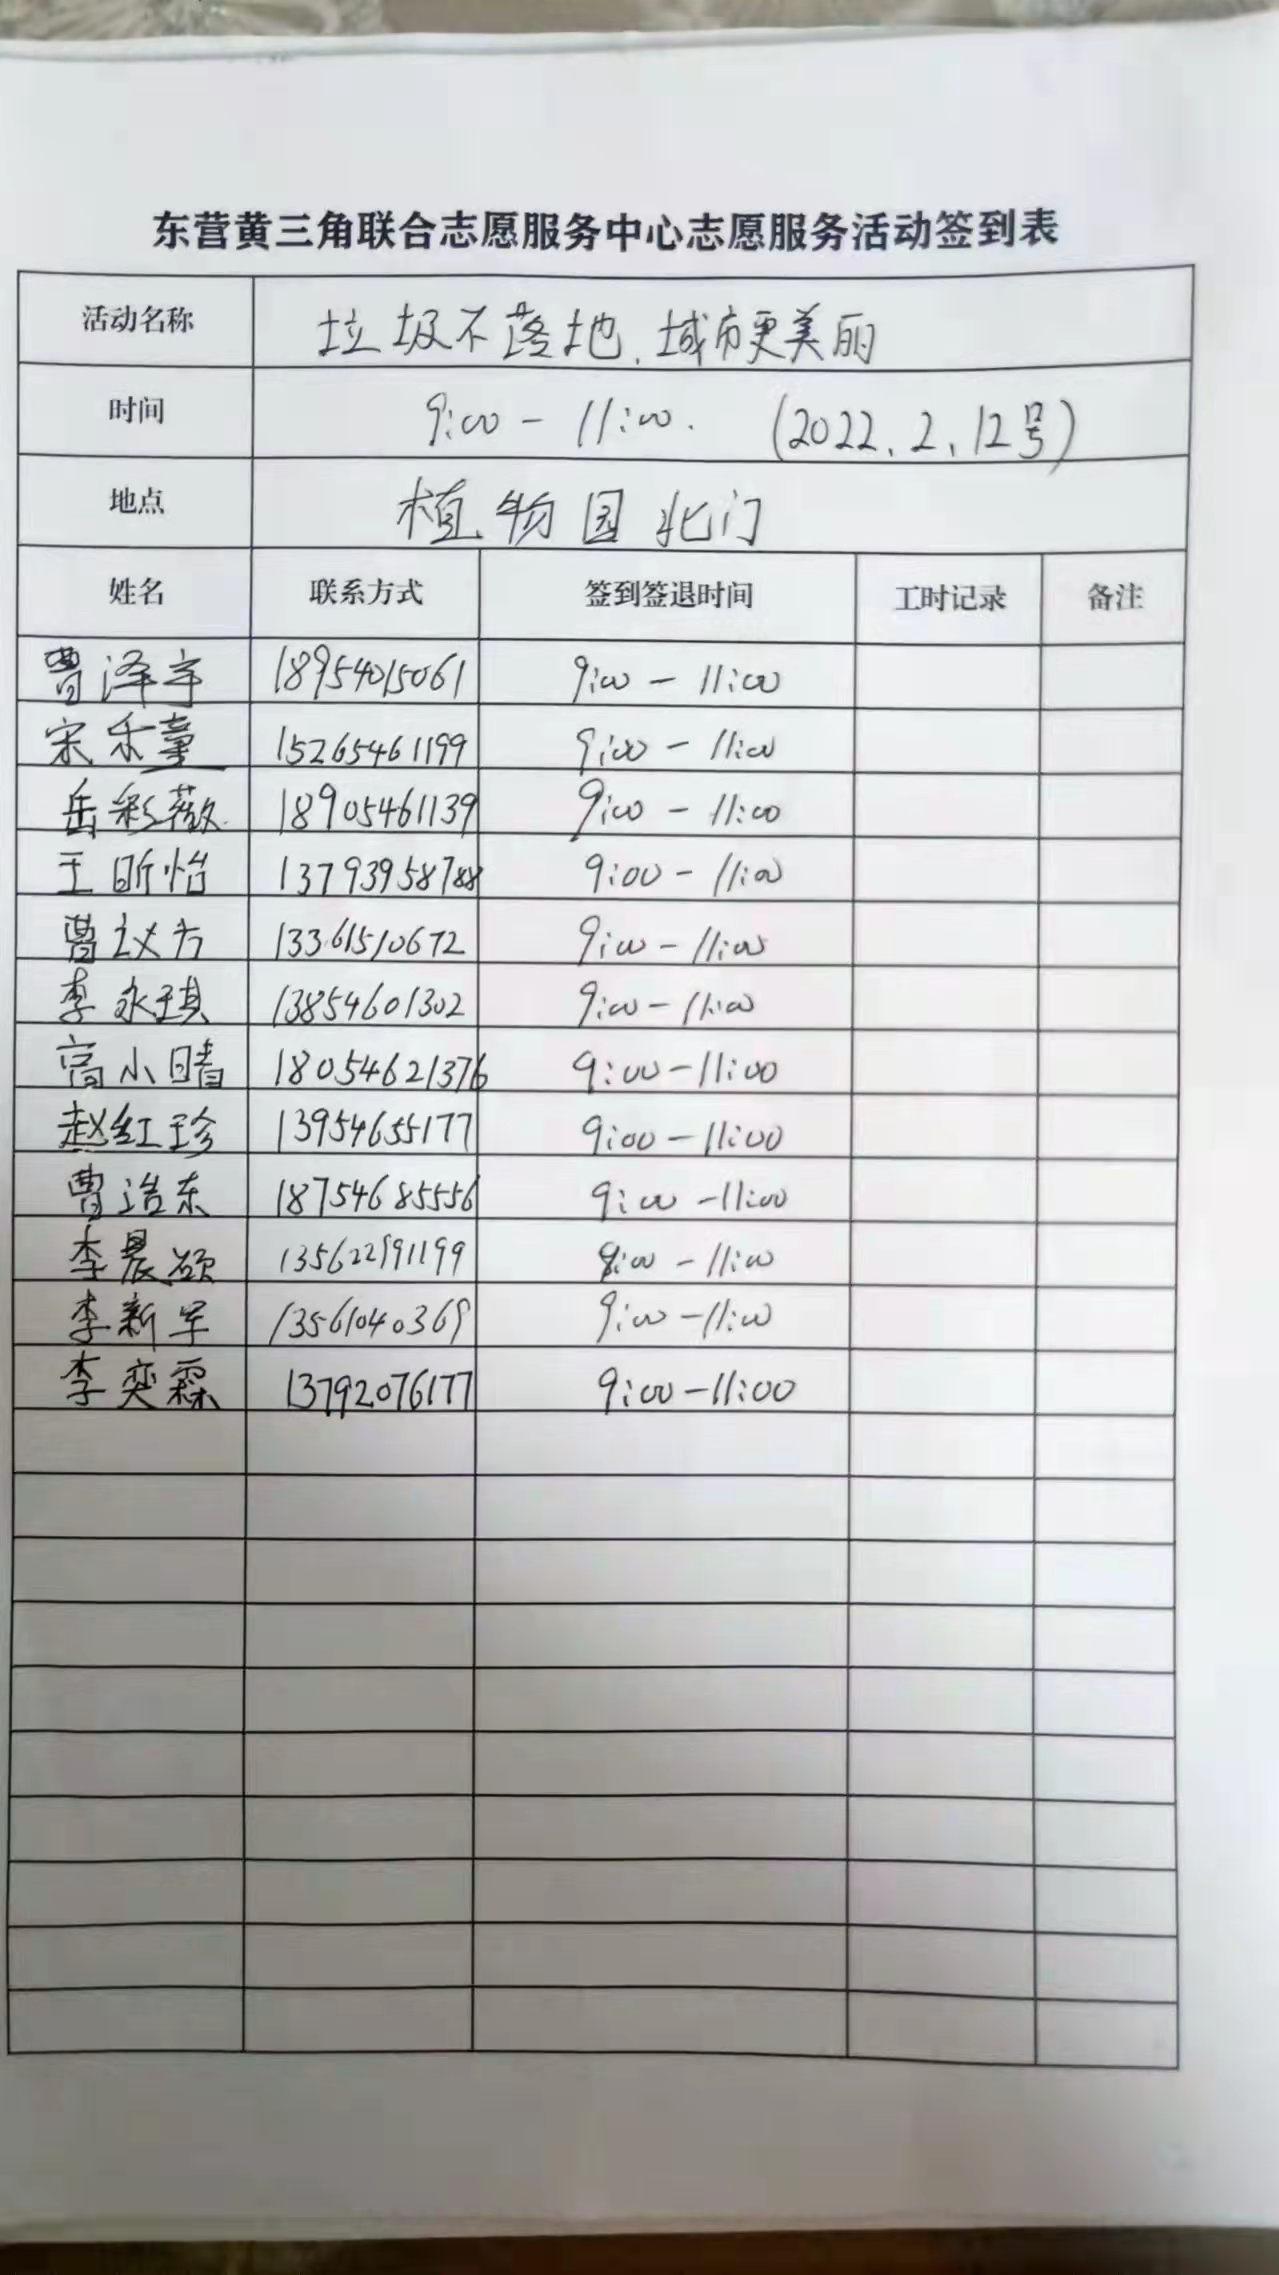 东营黄三角联合志愿服务中心志愿服务活动签到表
活动名称 垃圾不落地、城市更美丽
时间 9:00 - 11:00. (2022.2.12号)
地点 植物园北门
姓名 联系方式 签到签退时间 工时记录 备注
曹泽宇 18954015061 9:00 - 11:00
宋乐童 15265461199 9:00 - 11:00
岳彩薇 18905461139 9:00 - 11:00
王昕怡 13793958788 9:00 - 11:00
曹 13361510672 9:00 - 11:00
李永琪 13854601302 9:00 - 11:00
高小晴 18054621376 9:00 - 11:00
赵红珍 13954655177 9:00 - 11:00
曹浩东 18754685556 9:00 - 11:00
李晨硕 13562291199 9:00 - 11:00
李新军 13561040369 9:00 - 11:00
李奕霖 13792076177 9:00 - 11:00